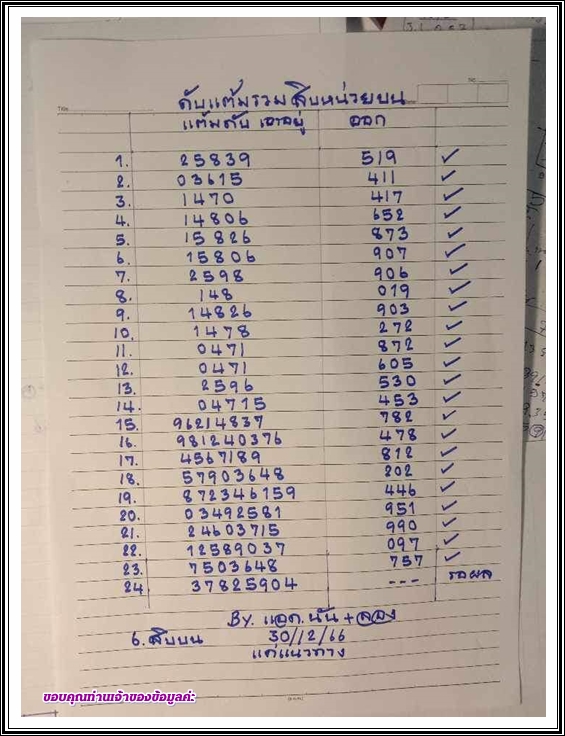 ดับแต้มรวมสิบหน่วยบน
แต้มดับ เอาอยู่ ออก
1. 25839 519 ✓
2. 03615 411 ✓
3. 1470 417 ✓
4. 14806 652 ✓
5. 15826 873 ✓
6. 15806 907 ✓
7. 2598 906 ✓
8. 148 019 ✓
9. 14826 903 ✓
10. 1478 272 ✓
11. 0471 872 ✓
12. 0471 605 ✓
13. 2596 530 ✓
14. 04715 453 ✓
15. 96214837 782 ✓
16. 981240376 478 ✓
17. 4567189 812 ✓
18. 57903648 202 ✓
19. 872346159 446 ✓
20. 03492581 951 ✓
21. 24603715 990 ✓
22. 12589037 097 ✓
23. 7503648 757 ✓
24 37825904 --- รอผล
By. แอด.นัน +
6. สิบบน 30/12/66
แค่แนวทาง
ขอบคุณท่านเจ้าของข้อมูลค่ะ